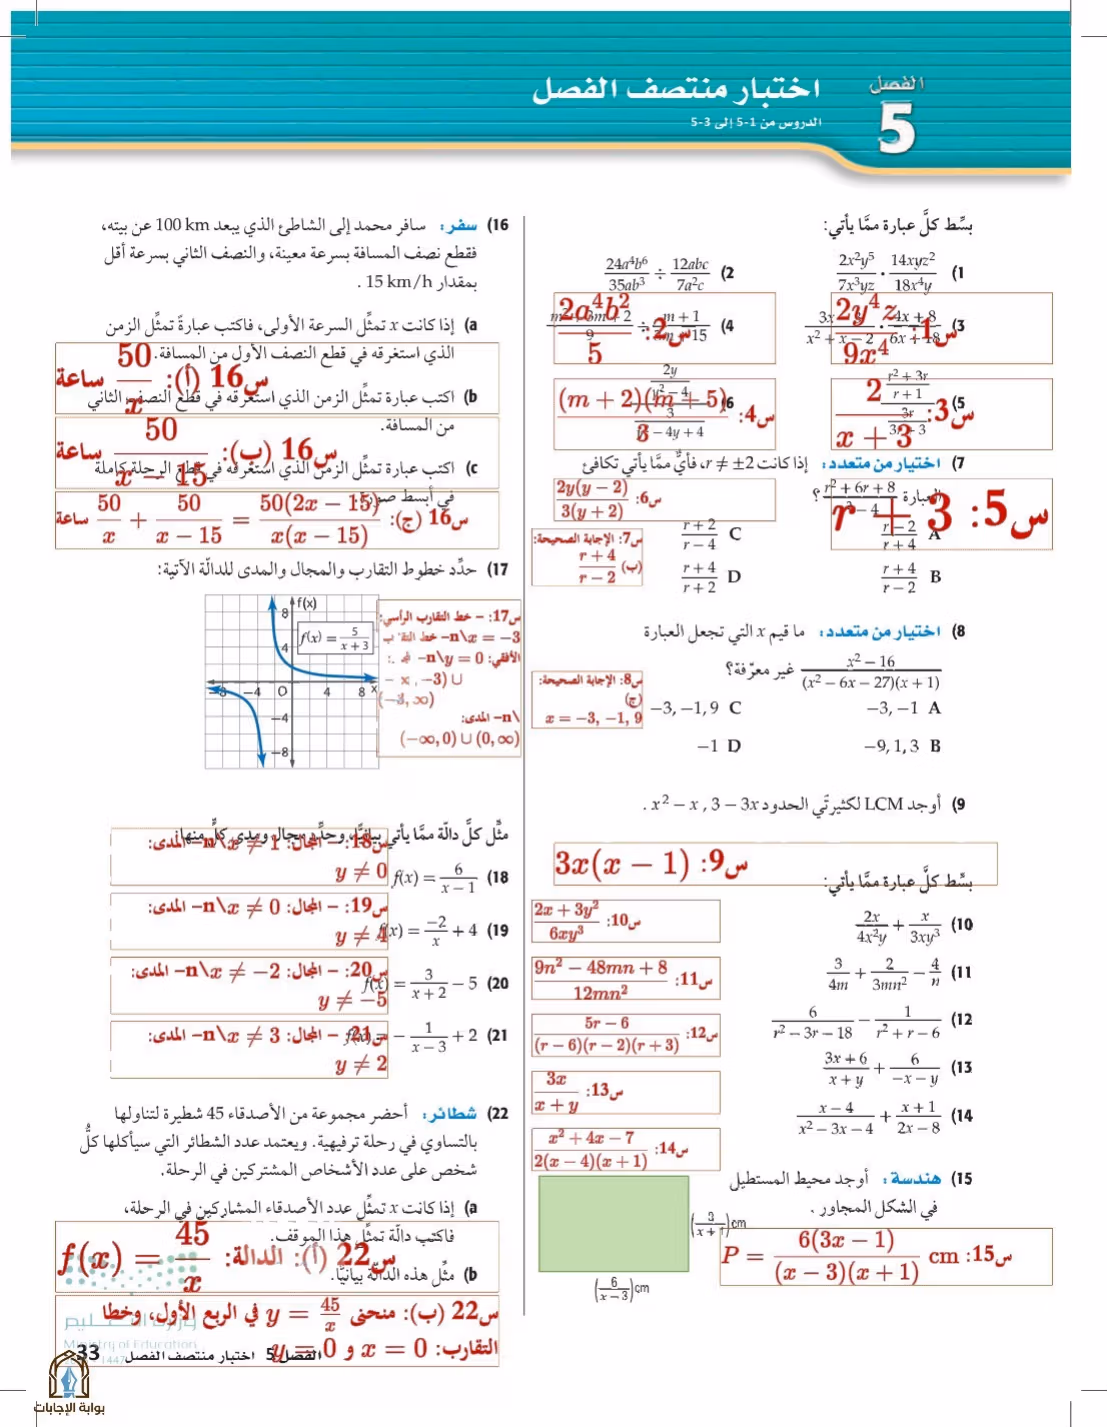 الفصل
5
اختبار منتصف الفصل
الدروس من 1-5 إلى 3-5
بسّط كلَّ عبارة ممَّا يأتي:
(1 2x²y⁵/7x³yz · 14xyz²/18x⁴y
(2 24a⁴b⁶/35ab³ ÷ 12abc/7a²c
س1: 2y⁴z/9x⁴
س2: 2a⁴b²/5
(3
(4
س3: 2/(x + 3)
س4: (m + 2)(m + 5)/3
(5
(7 اختيار من متعدد: إذا كانت r ≠ ±2، فأيٌّ ممَّا يأتي تكافئ
العبارة r² + 6r + 8
س5: r + 3
س6: 2y(y − 2)/3(y + 2)
A (r − 2)/(r + 4)
C (r + 2)/(r − 4)
B (r + 4)/(r − 2)
D (r + 4)/(r + 2)
س7: الإجابة الصحيحة:
(ب) (r + 4)/(r − 2)
(8 اختيار من متعدد: ما قيم x التي تجعل العبارة
(x² − 16)/((x² − 6x − 27)(x + 1)) غير معرّفة؟
A −3, −1
C −3, −1, 9
B −9, 1, 3
D −1
س8: الإجابة الصحيحة:
(ج)
x = −3, −1, 9
(9 أوجد LCM لكثيرتَي الحدود x² − x , 3 − 3x .
س9: 3x(x − 1)
بسّط كلَّ عبارة ممَّا يأتي:
(10 2x/4x²y + x/3xy³
س10: (2x + 3y²)/6xy³
(11 3/4m + 2/3mn² − 4/n
س11: (9n² − 48mn + 8)/12mn²
(12 6/(r² − 3r − 18) − 1/(r² + r − 6)
س12: (5r − 6)/((r − 6)(r − 2)(r + 3))
(13 (3x + 6)/(x + y) + 6/(−x − y)
س13: 3x/(x + y)
(14 (x − 4)/(x² − 3x − 4) + (x + 1)/(2x − 8)
س14: (x² + 4x − 7)/(2(x − 4)(x + 1))
(15 هندسة: أوجد محيط المستطيل
في الشكل المجاور .
(3/(x + 1)) cm
(6/(x − 3)) cm
س15: P = 6(3x − 1)/((x − 3)(x + 1)) cm
(16 سفر: سافر محمد إلى الشاطئ الذي يبعد 100 km عن بيته،
فقطع نصف المسافة بسرعة معينة، والنصف الثاني بسرعة أقل
بمقدار 15 km/h .
(a إذا كانت x تمثِّل السرعة الأولى، فاكتب عبارةً تمثِّل الزمن
الذي استغرقه في قطع النصف الأول من المسافة.
س16 (أ): 50/x ساعة
(b اكتب عبارة تمثِّل الزمن الذي استغرقه في قطع النصف الثاني
من المسافة.
س16 (ب): 50/(x − 15) ساعة
(c اكتب عبارة تمثِّل الزمن الذي استغرقه في قطع الرحلة كاملة
في أبسط صورة
س16 (ج): 50/x + 50/(x − 15) = 50(2x − 15)/(x(x − 15)) ساعة
(17 حدِّد خطوط التقارب والمجال والمدى للدالّة الآتية:
f(x)
8
4
f(x) = 5/(x + 3)
−8 −4 O 4 8 x
−4
−8
س17: - خط التقارب الرأسي:
x = −3\n- خط التقا ب
الأفقي: y = 0\n-
−3) ∪
(−3, ∞)
\n- المدى:
(−∞, 0) ∪ (0, ∞)
مثِّل كلَّ دالّة ممَّا يأتي بيانيًّا، وحدِّد مجال ومدى كلٍّ منها:
س18: - المجال: x ≠ 1\n- المدى:
y ≠ 0
(18 f(x) = 6/(x − 1)
س19: - المجال: x ≠ 0\n- المدى:
y ≠ 4
(19 f(x) = −2/x + 4
س20: - المجال: x ≠ −2\n- المدى:
y ≠ −5
(20 f(x) = 3/(x + 2) − 5
س21: - المجال: x ≠ 3\n- المدى:
y ≠ 2
(21 f(x) = − 1/(x − 3) + 2
(22 شطائر: أحضر مجموعة من الأصدقاء 45 شطيرة لتناولها
بالتساوي في رحلة ترفيهية. ويعتمد عدد الشطائر التي سيأكلها كلُّ
شخص على عدد الأشخاص المشتركين في الرحلة.
(a إذا كانت x تمثِّل عدد الأصدقاء المشاركين في الرحلة،
فاكتب دالّة تمثِّل هذا الموقف.
س22 (أ): الدالة: f(x) = 45/x
(b مثِّل هذه الدالّة بيانيًّا.
س22 (ب): منحنى y = 45/x في الربع الأول، وخطا
التقارب: x = 0 و y = 0
وزارة التعليم
Ministry of Education
1447
الفصل 5 اختبار منتصف الفصل 33
بوابة الإجابات